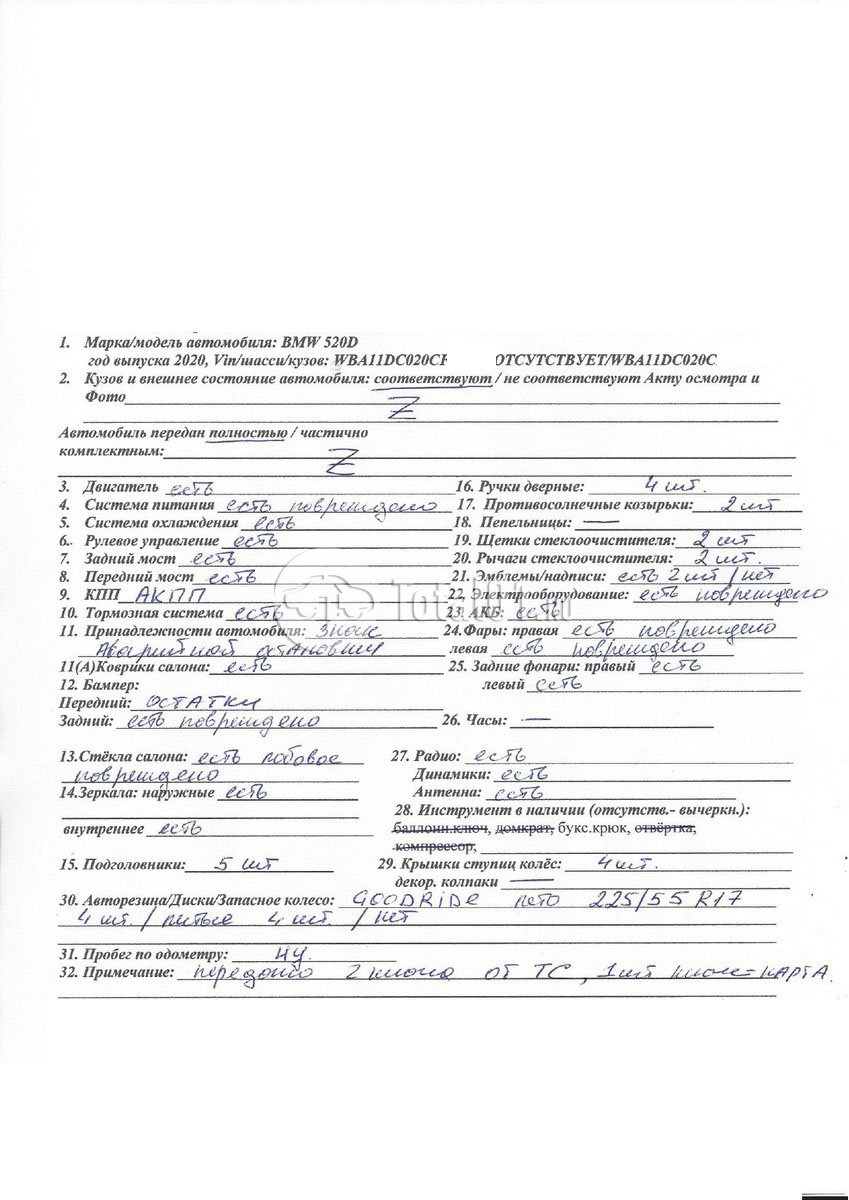 1. Марка/модель автомобиля: BMW 520D
год выпуска 2020, Vin/шасси/кузов: WBA11DC020CF ОТСУТСТВУЕТ/WBA11DC020C
2. Кузов и внешнее состояние автомобиля: соответствуют / не соответствуют Акту осмотра и
Фото
Z
Автомобиль передан полностью / частично
комплектным:
Z
3. Двигатель есть
4. Система питания есть повреждено
5. Система охлаждения есть
6. Рулевое управление есть
7. Задний мост есть
8. Передний мост есть
9. КПП АКПП
10. Тормозная система есть
11. Принадлежности автомобиля: знак
аварийной остановки
11(А)Коврики салона: есть
12. Бампер:
Передний: остатки
Задний: есть повреждено
16. Ручки дверные: 4 шт.
17. Противосолнечные козырьки: 2 шт
18. Пепельницы: —
19. Щетки стеклоочистителя: 2 шт
20. Рычаги стеклоочистителя: 2 шт.
21. Эмблемы/надписи: есть 2 шт / нет
22. Электрооборудование: есть повреждено
23. АКБ: есть
24.Фары: правая есть повреждено
левая есть повреждено
25. Задние фонари: правый есть
левый есть
26. Часы: —
13.Стёкла салона: есть лобовое
повреждено
14.Зеркала: наружные есть
внутреннее есть
15. Подголовники: 5 шт
27. Радио: есть
Динамики: есть
Антенна: есть
28. Инструмент в наличии (отсутств.- вычеркн.):
баллонн.ключ, домкрат, букс.крюк, отвёртка,
компрессор,
29. Крышки ступиц колёс: 4 шт.
декор. колпаки —
30. Авторезина/Диски/Запасное колесо: GOODRIDE лето 225/55 R17
4 шт. / литые 4 шт. / нет
31. Пробег по одометру: НУ.
32. Примечание: передано 2 ключа от ТС, 1 шт ключ-карта.